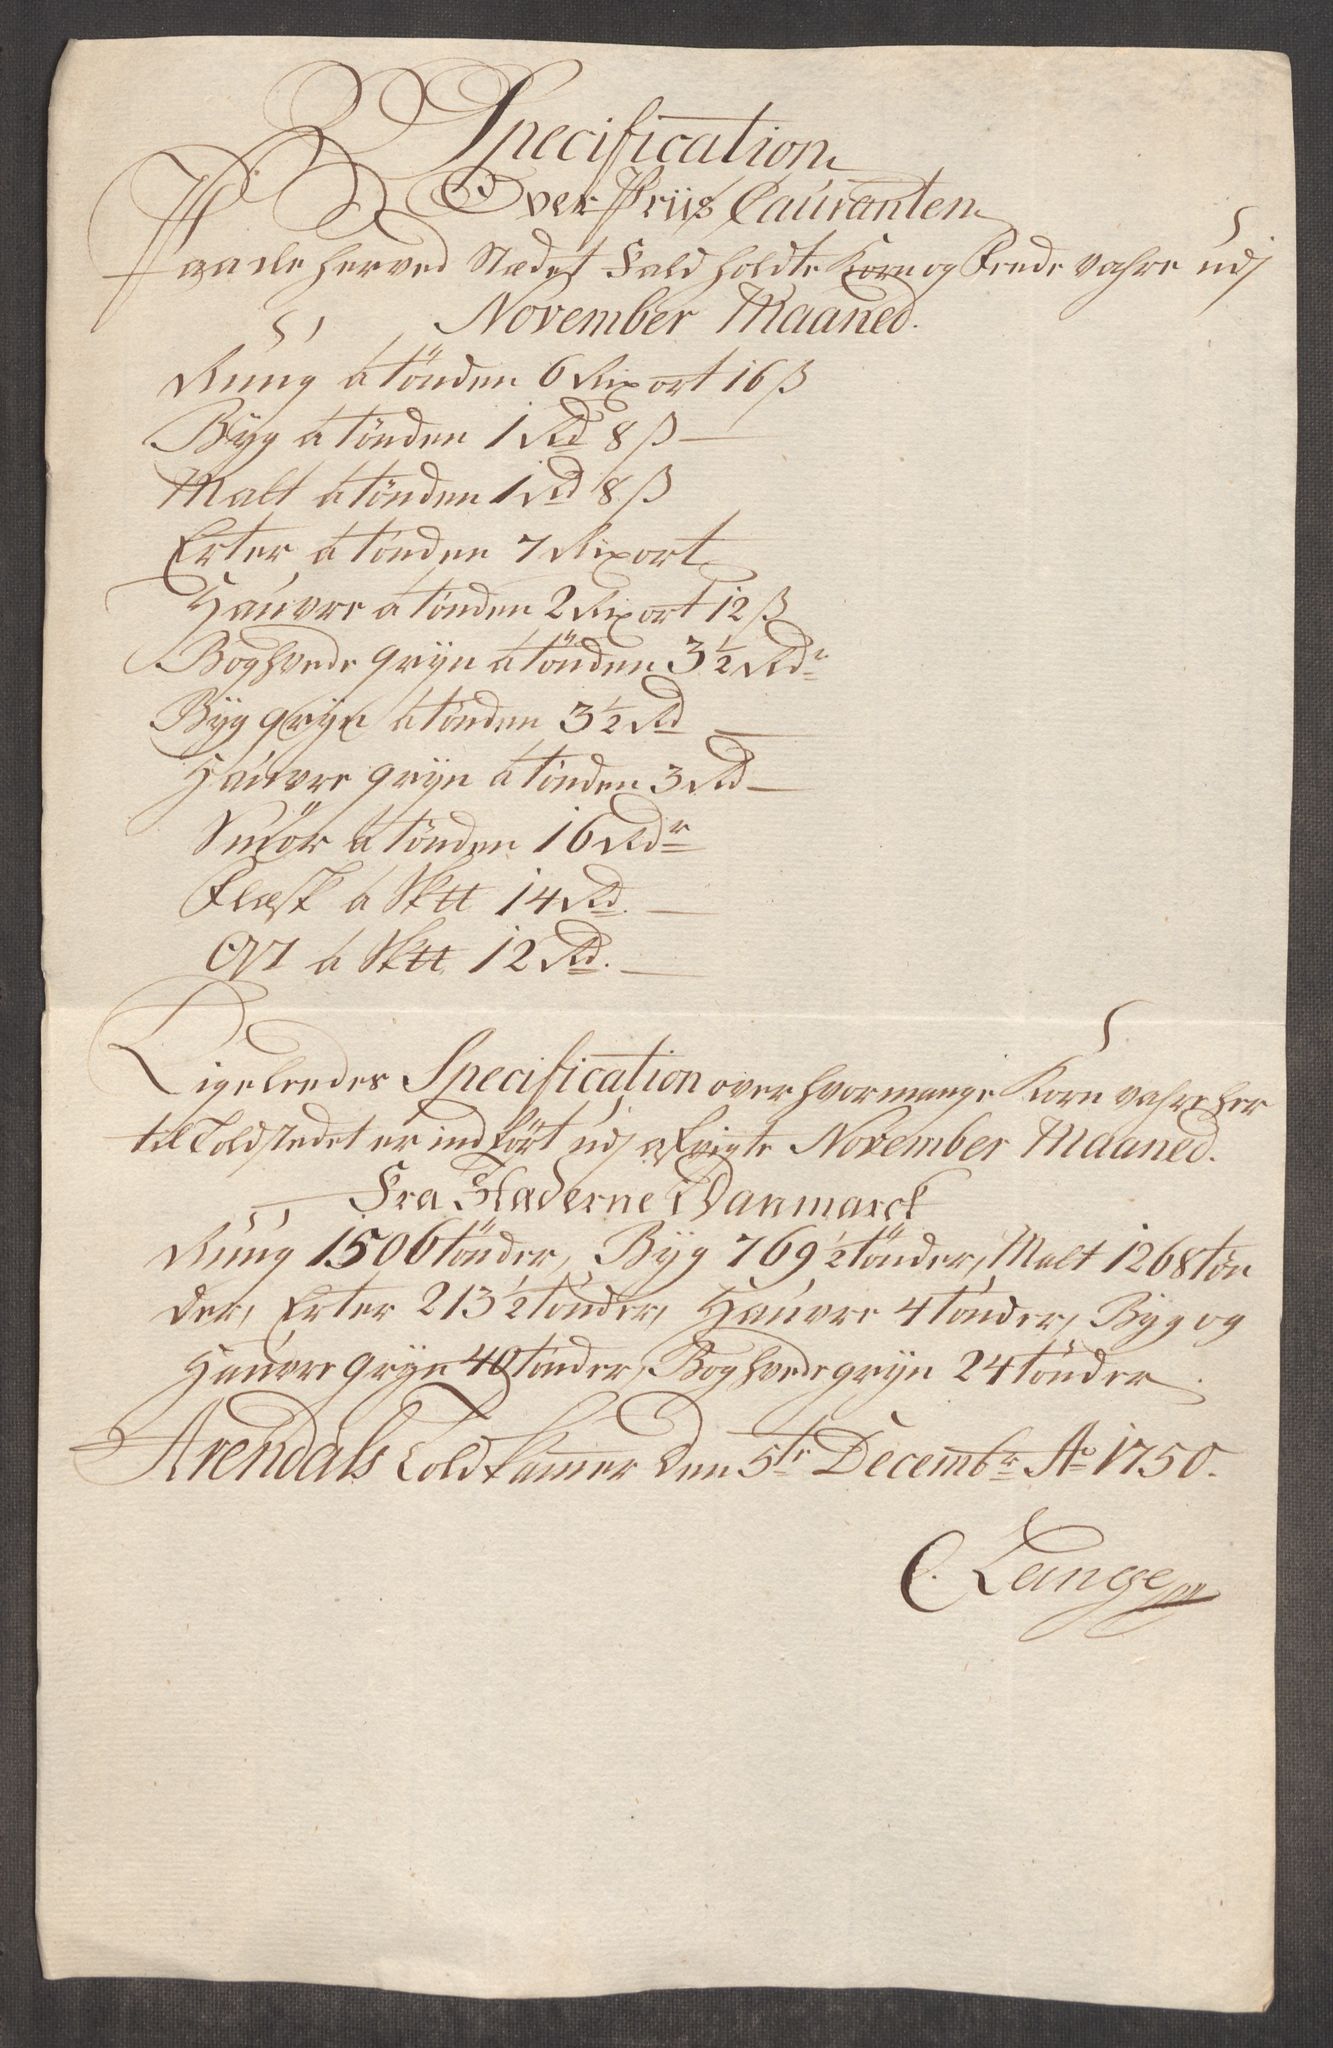 Specification
Over Priis Couranten
Paa de her ved Stædet Fald holdte Korn og Fede vahre udj
November Maaned.
Rúúg á tönden 6 Rixort 16 ß
Býg á tönden 1 Rd 8 ß
Malt á tönden 1 Rd 8 ß
Erter á tönden 7 Rixort
Haúvre á tönden 2 Rixort 12 ß
Boghvede grÿn á tönden 3½ Rdr
Bÿg grÿn á tönden 3½ Rd
Haúvre grÿn á tönden 3 Rd
Smör á tönden 16 Rdr
Flæsk á Sk℔ 14 Rd.
Ost á Sk℔ 12 Rd.
Ligeleedes Specification over hvor mange Korn vahre her
til Toldstedet er indført udj afvigte November Maaned.
Fra Stæderne i Danmarck
Rúúg 1506 tönder, Bÿg 769½ tönder, Malt 1268 tön
der, Erter 213½ tönder, Haúvre 4 tönder, Bÿg og
Haúvre grÿn 40 tönder, Boghvede grÿn 24 tönder.
Arendals Told Kammer den 5te Decembr Ao 1750.
C. Lange